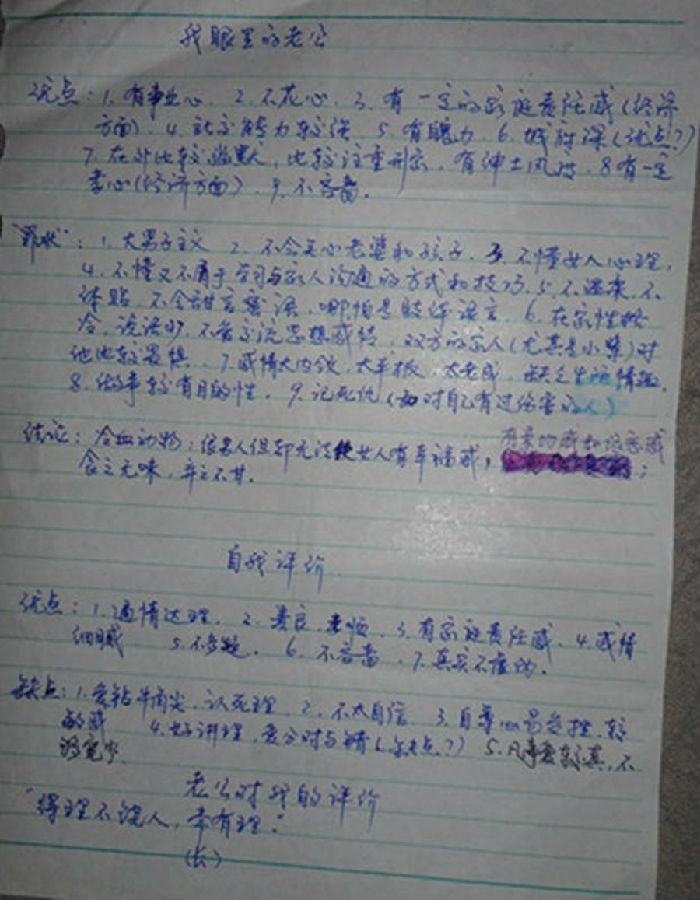 我眼里的老公
优点：1.有事业心. 2.不花心. 3.有一定的家庭责任感(经济
方面). 4.社交能力较强 5.有魄力. 6.城府深(优点?)
7.在外比较幽默, 比较注重形象, 有绅士风度. 8.有一定
孝心(经济方面). 9.不吝啬.
"罪状"：1.大男子主义 2.不会关心老婆和孩子. 3.不懂女人心理,
4.不懂又不屑于学习与家人沟通的方式和技巧. 5.不温柔, 不
体贴, 不会甜言蜜语, 哪怕是 谎言. 6.在家性格
冷, 说话少, 不善交流思想感情, 双方的家人(尤其是小 )对
他比较畏惧. 7.感情太内敛, 太平板, 太老成, 缺乏生活情趣.
8.做事较有目的性. 9.记死仇(如对自己有过伤害的人)
结论：冷血动物；像男人但却无法使女人有幸福感,
食之无味, 弃之不甘.
自我评价
优点：1.通情达理. 2.善良. 3.有家庭责任感. 4.感情
细腻 5.不多疑. 6.不吝啬. 7.真实不虚伪.
缺点：1.爱钻牛角尖, 认死理. 2.不太自信. 3.自尊心易受挫, 较
敏感 4.好讲理, 爱分对与错(算缺点?) 5.凡事爱较真, 不
够宽容.
老公对我的评价
"得理不饶人, 幸有理."